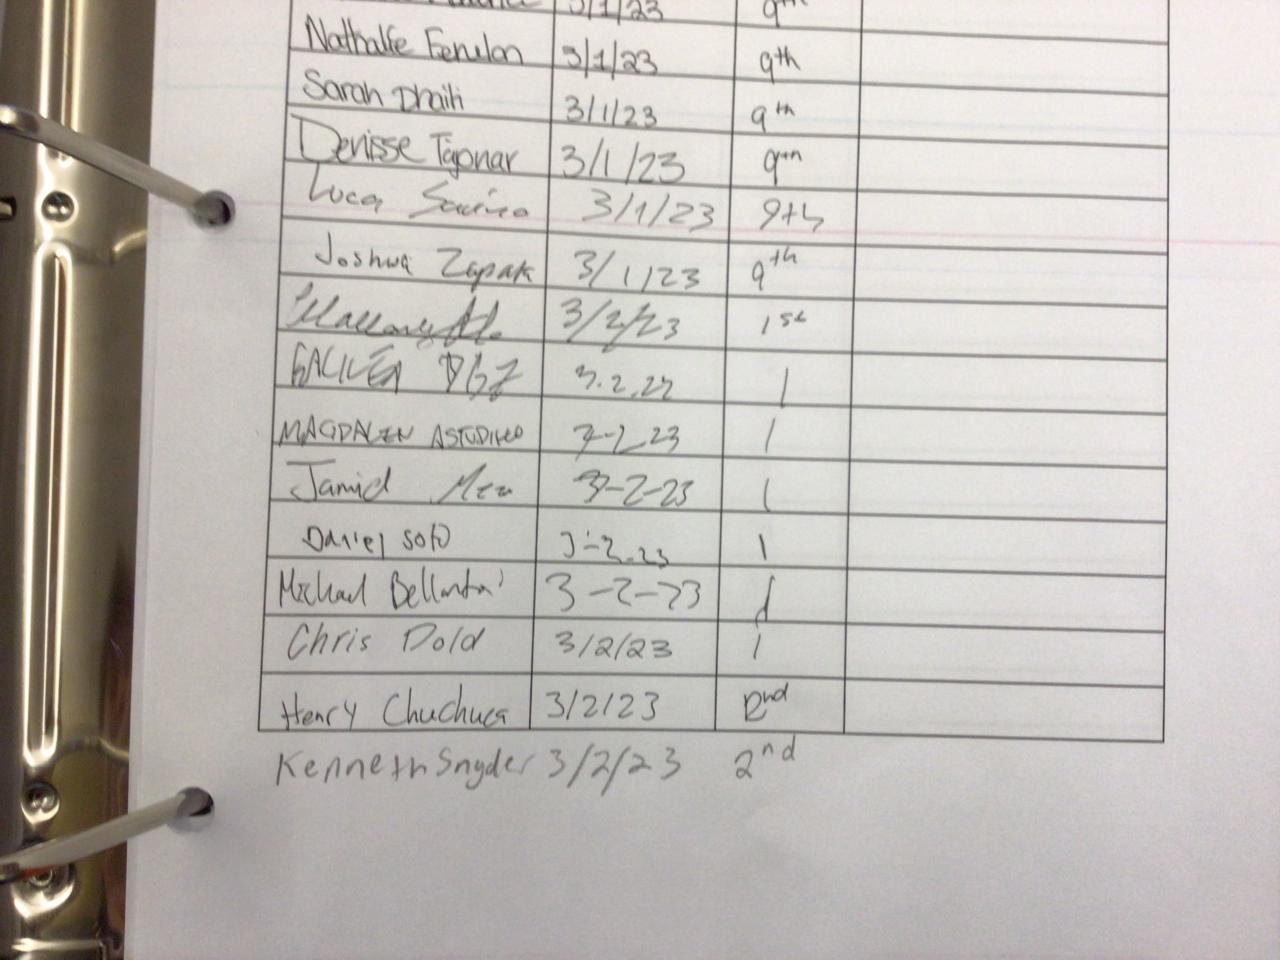 3/1/23 9th
Nathalie Fenelon 3/1/23 9th
Sarah Dhaiti 3/1/23 9th
Denisse 3/1/23 9th
Luca 3/1/23 9th
Joshua Zapak 3/1/23 9th
3/2/23 1st
3.2.23 1
MAGDALEN ASTUDILLO 3-2.23 1
Jamid 3-2-23 1
Daniel Soto 3-2.23 1
Michael 3-2-23 1
Chris Dold 3/2/23 1
Henry Chuchuca 3/2/23 2nd
Kenneth Snyder 3/2/23 2nd